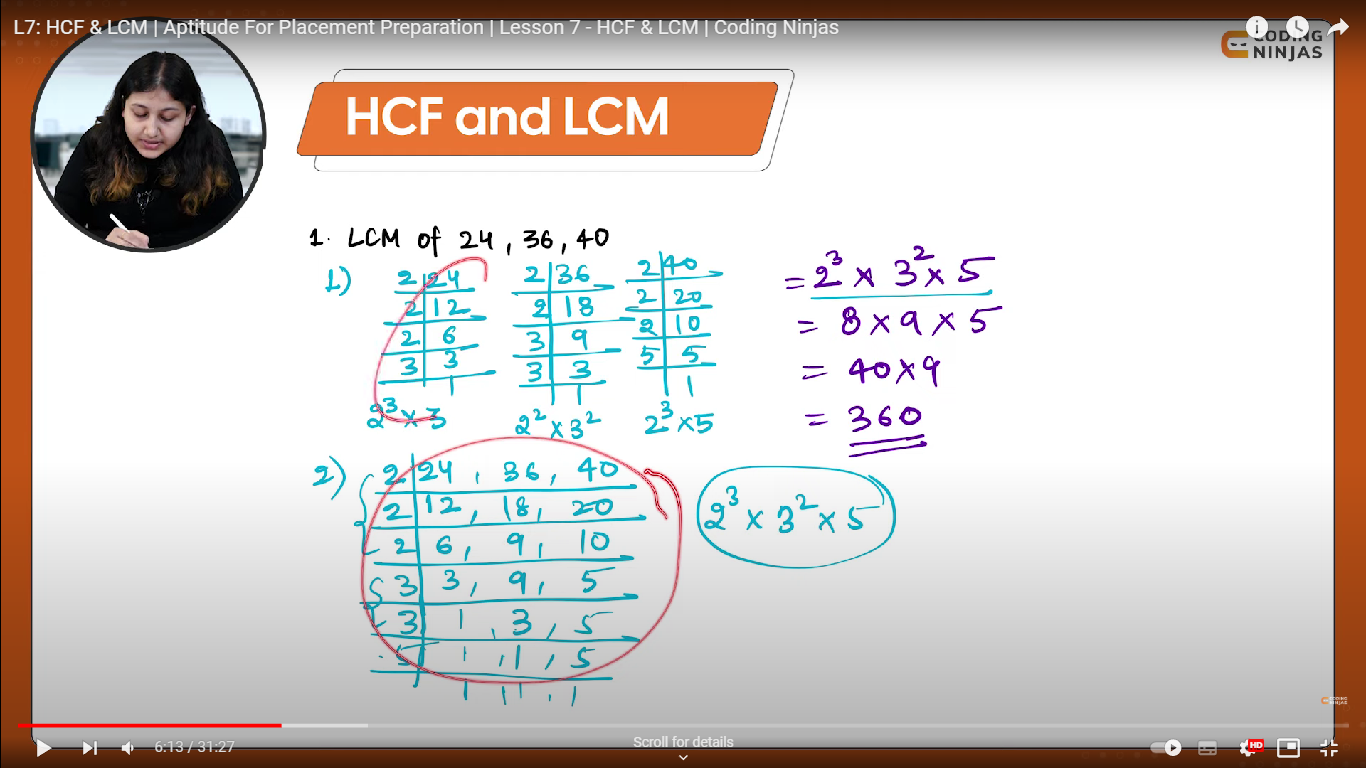 L7: HCF & LCM | Aptitude For Placement Preparation | Lesson 7 - HCF & LCM | Coding Ninjas
CODING
NINJAS
HCF and LCM
1. LCM of 24, 36, 40
1)
2 | 24
2 | 12
2 | 6
3 | 3
1
2³ × 3
2 | 36
2 | 18
3 | 9
3 | 3
1
2² × 3²
2 | 40
2 | 20
2 | 10
5 | 5
1
2³ × 5
= 2³ × 3² × 5
= 8 × 9 × 5
= 40 × 9
= 360
2)
2 | 24, 36, 40
2 | 12, 18, 20
2 | 6, 9, 10
3 | 3, 9, 5
3 | 1, 3, 5
5 | 1, 1, 5
1, 1, 1
2³ × 3² × 5
CODING
NINJAS
6:13 / 31:27
Scroll for details
HD